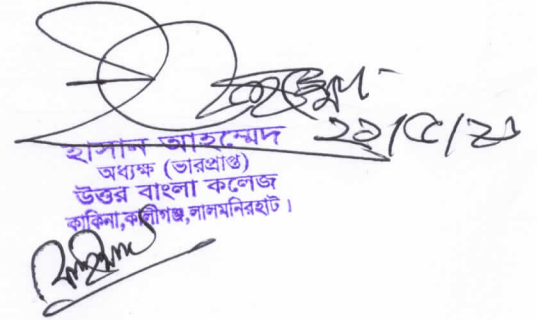 ২২/৫/২১
হাসান আহম্মেদ
অধ্যক্ষ (ভারপ্রাপ্ত)
উত্তর বাংলা কলেজ
কাকিনা,কালীগঞ্জ,লালমনিরহাট।